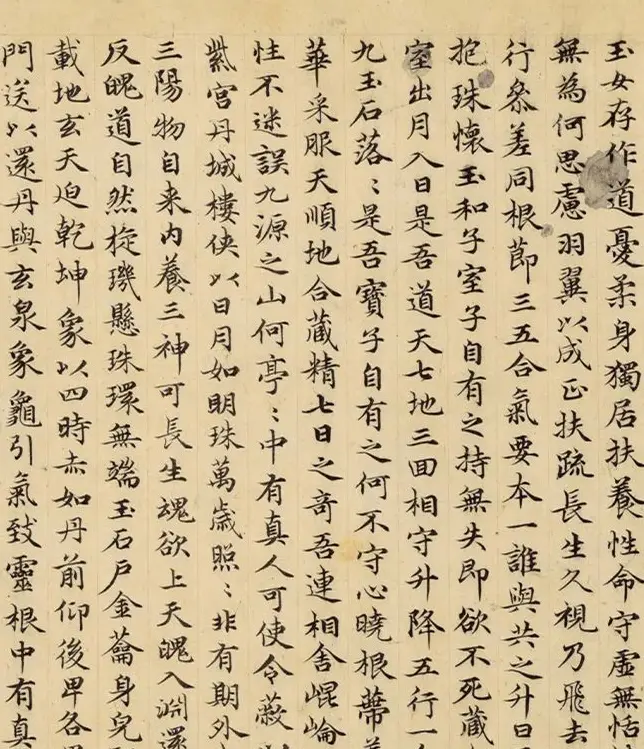 玉女存作道憂柔身獨居扶養性命守虛無恬
無為何思慮羽翼以成正扶疏長生久視乃飛去
行叅差同根莭三五合氣要本一誰與共之升日
抱珠懷玉和子室子自有之持無失即欲不死藏
室出月入日是吾道天七地三回相守升降五行一
九玉石落〻是吾寶子自有之何不守心曉根蒂
華采服天順地合藏精七日之奇吾連相舍崐崘
性不迷誤九源之山何亭〻中有真人可使令蔽以
紫宮丹城樓俠以日月如明珠萬歲照〻非有期外
三陽物自来內養三神可長生魂欲上天魄入淵還
反魄道自然旋璣懸珠環無端玉石戶金蘥身皃
載地玄天迫乾坤象以四時赤如丹前仰後卑各
門送以還丹與玄泉象龜引氣致靈根中有真